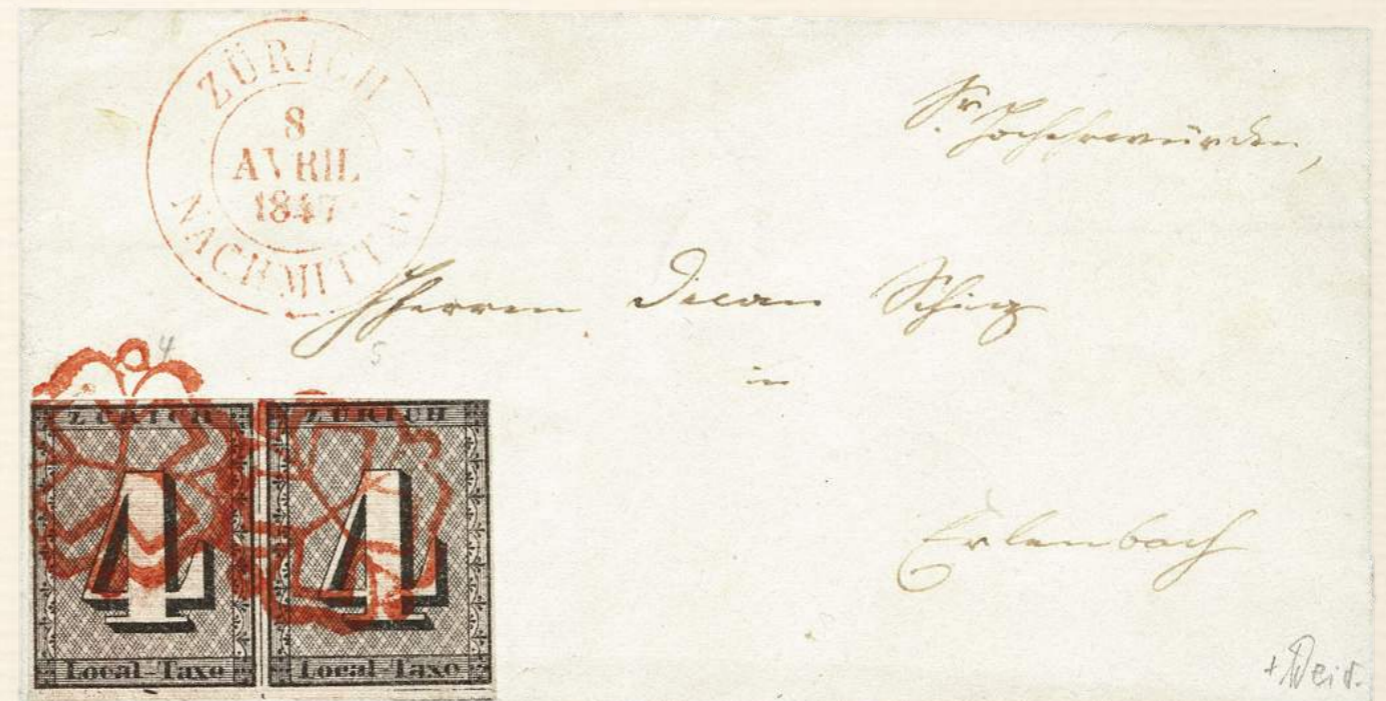 ZÜRICH
8
AVRIL
1847
NACHMITTAG
Sr. Hochehrwürden,
Herren Decan Schinz
in
Erlenbach
4
5
ZÜRICH
4
Local-Taxe
ZÜRICH
4
Local-Taxe